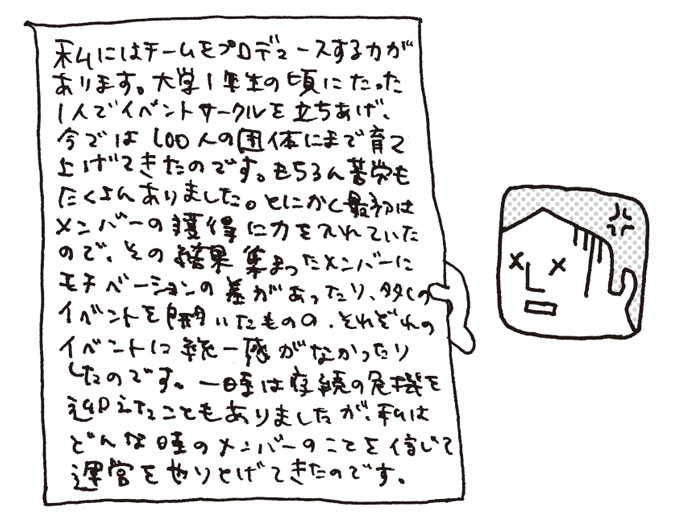 私にはチームをプロデュースする力が
あります。大学1年生の頃にたった
1人でイベントサークルを立ちあげ、
今では100人の団体にまで育て
上げてきたのです。もちろん苦労も
たくさんありました。とにかく最初は
メンバーの獲得に力を入れていた
ので、その結果集まったメンバーに
モチベーションの差があったり、多くの
イベントを開いたものの、それぞれの
イベントに統一感がなかったり
したのです。一時は存続の危機を
迎えたこともありましたが、私は
どんな時のメンバーのことを信じて
運営をやりとげてきたのです。